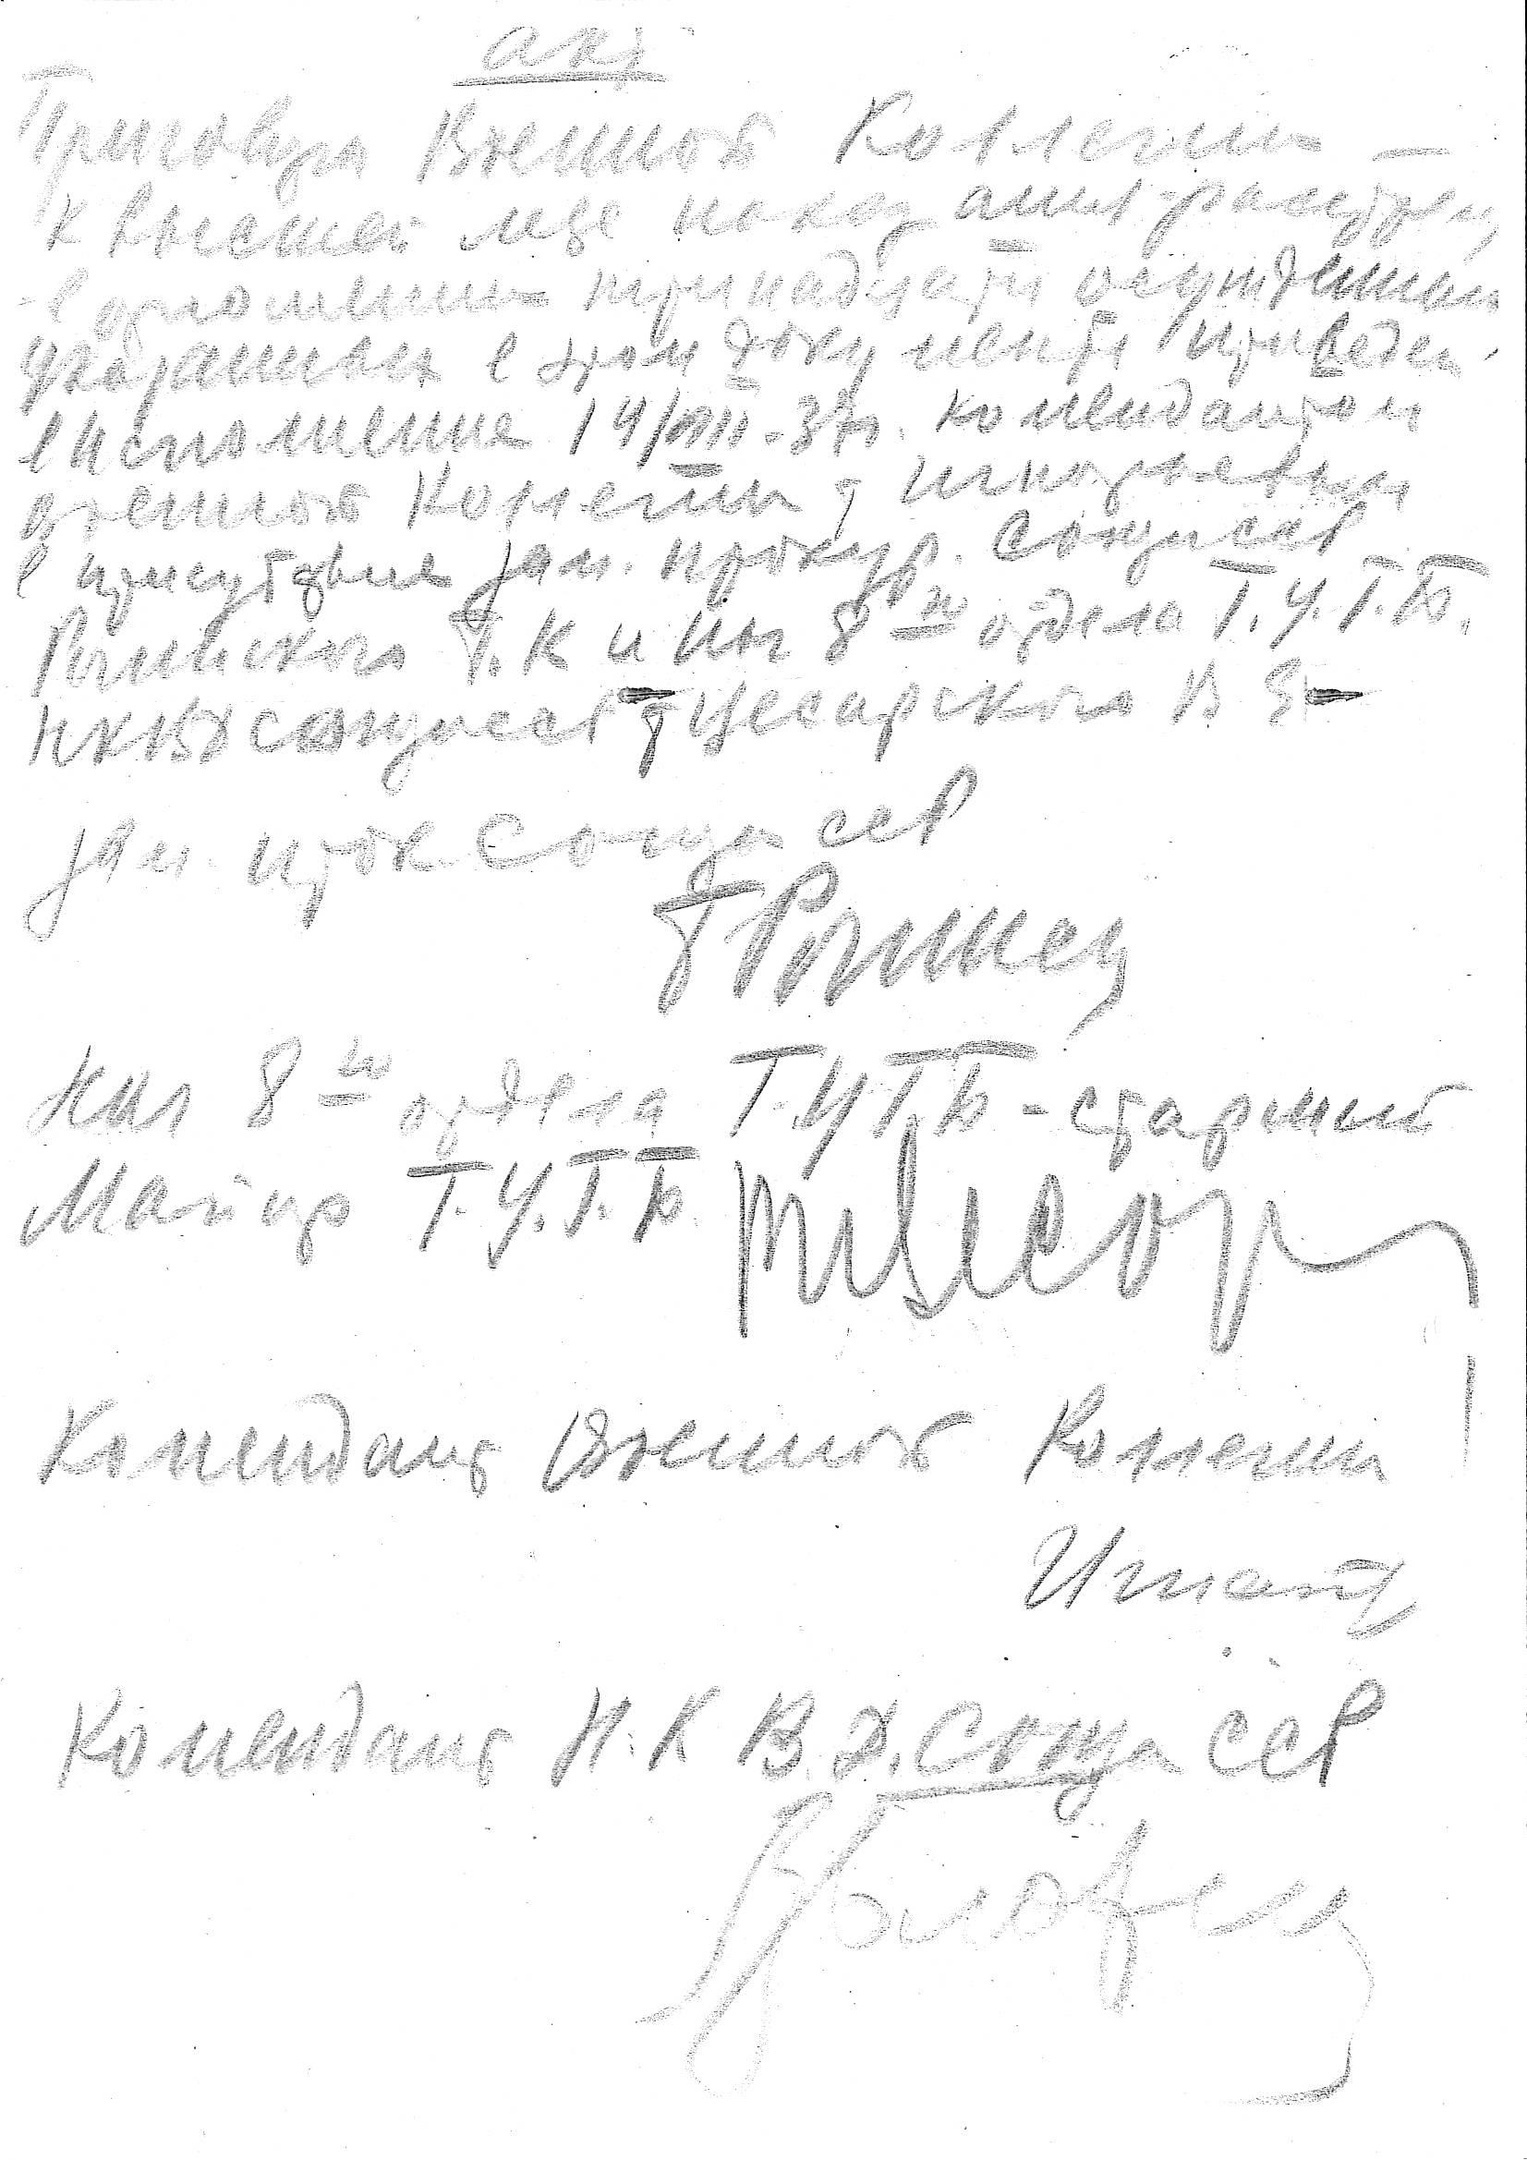 Акт
Приговор Военной Коллегии —
к высшей мере наказания расстрелу
в отношении тринадцати осужденных
указанных в этом документе приведен
в исполнение 14/VIII-37г. комендантом
военной Коллегии т. Игнатьевым
в присутствии зам. прокур. Союза ССР
Рогинского Г.К и Нач 8го отдела Г.У.Г.Б.
НКВД союза ССР т Цесарского В Е
Зам. прок Союза ССР
Г Рогинск
Нач 8го отдела Г.У.Г.Б - старший
Майор Г.У.Г.Б.
Комендант Военной Коллегии
Игнат
Комендант Н.К В.Д. Союза ССР